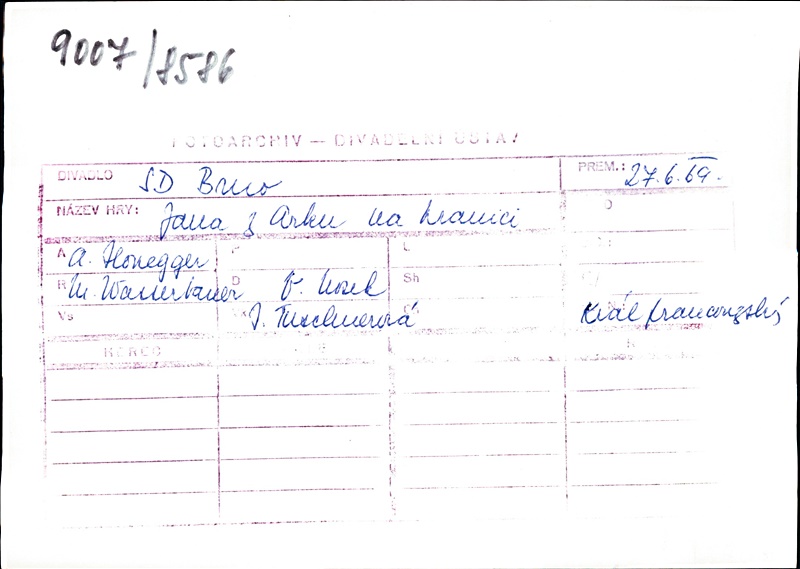 9007/8586
FOTOARCHIV – DIVADELNÍ ÚSTAV
DIVADLO SD Brno PREM.: 27.6.69.
NÁZEV HRY: Jana z Arku na hranici O
A A. Honegger L
R M. Wasserbauer D V. Nosek Sh
Vs J. Tuschnerová Král francouzský
HEREC